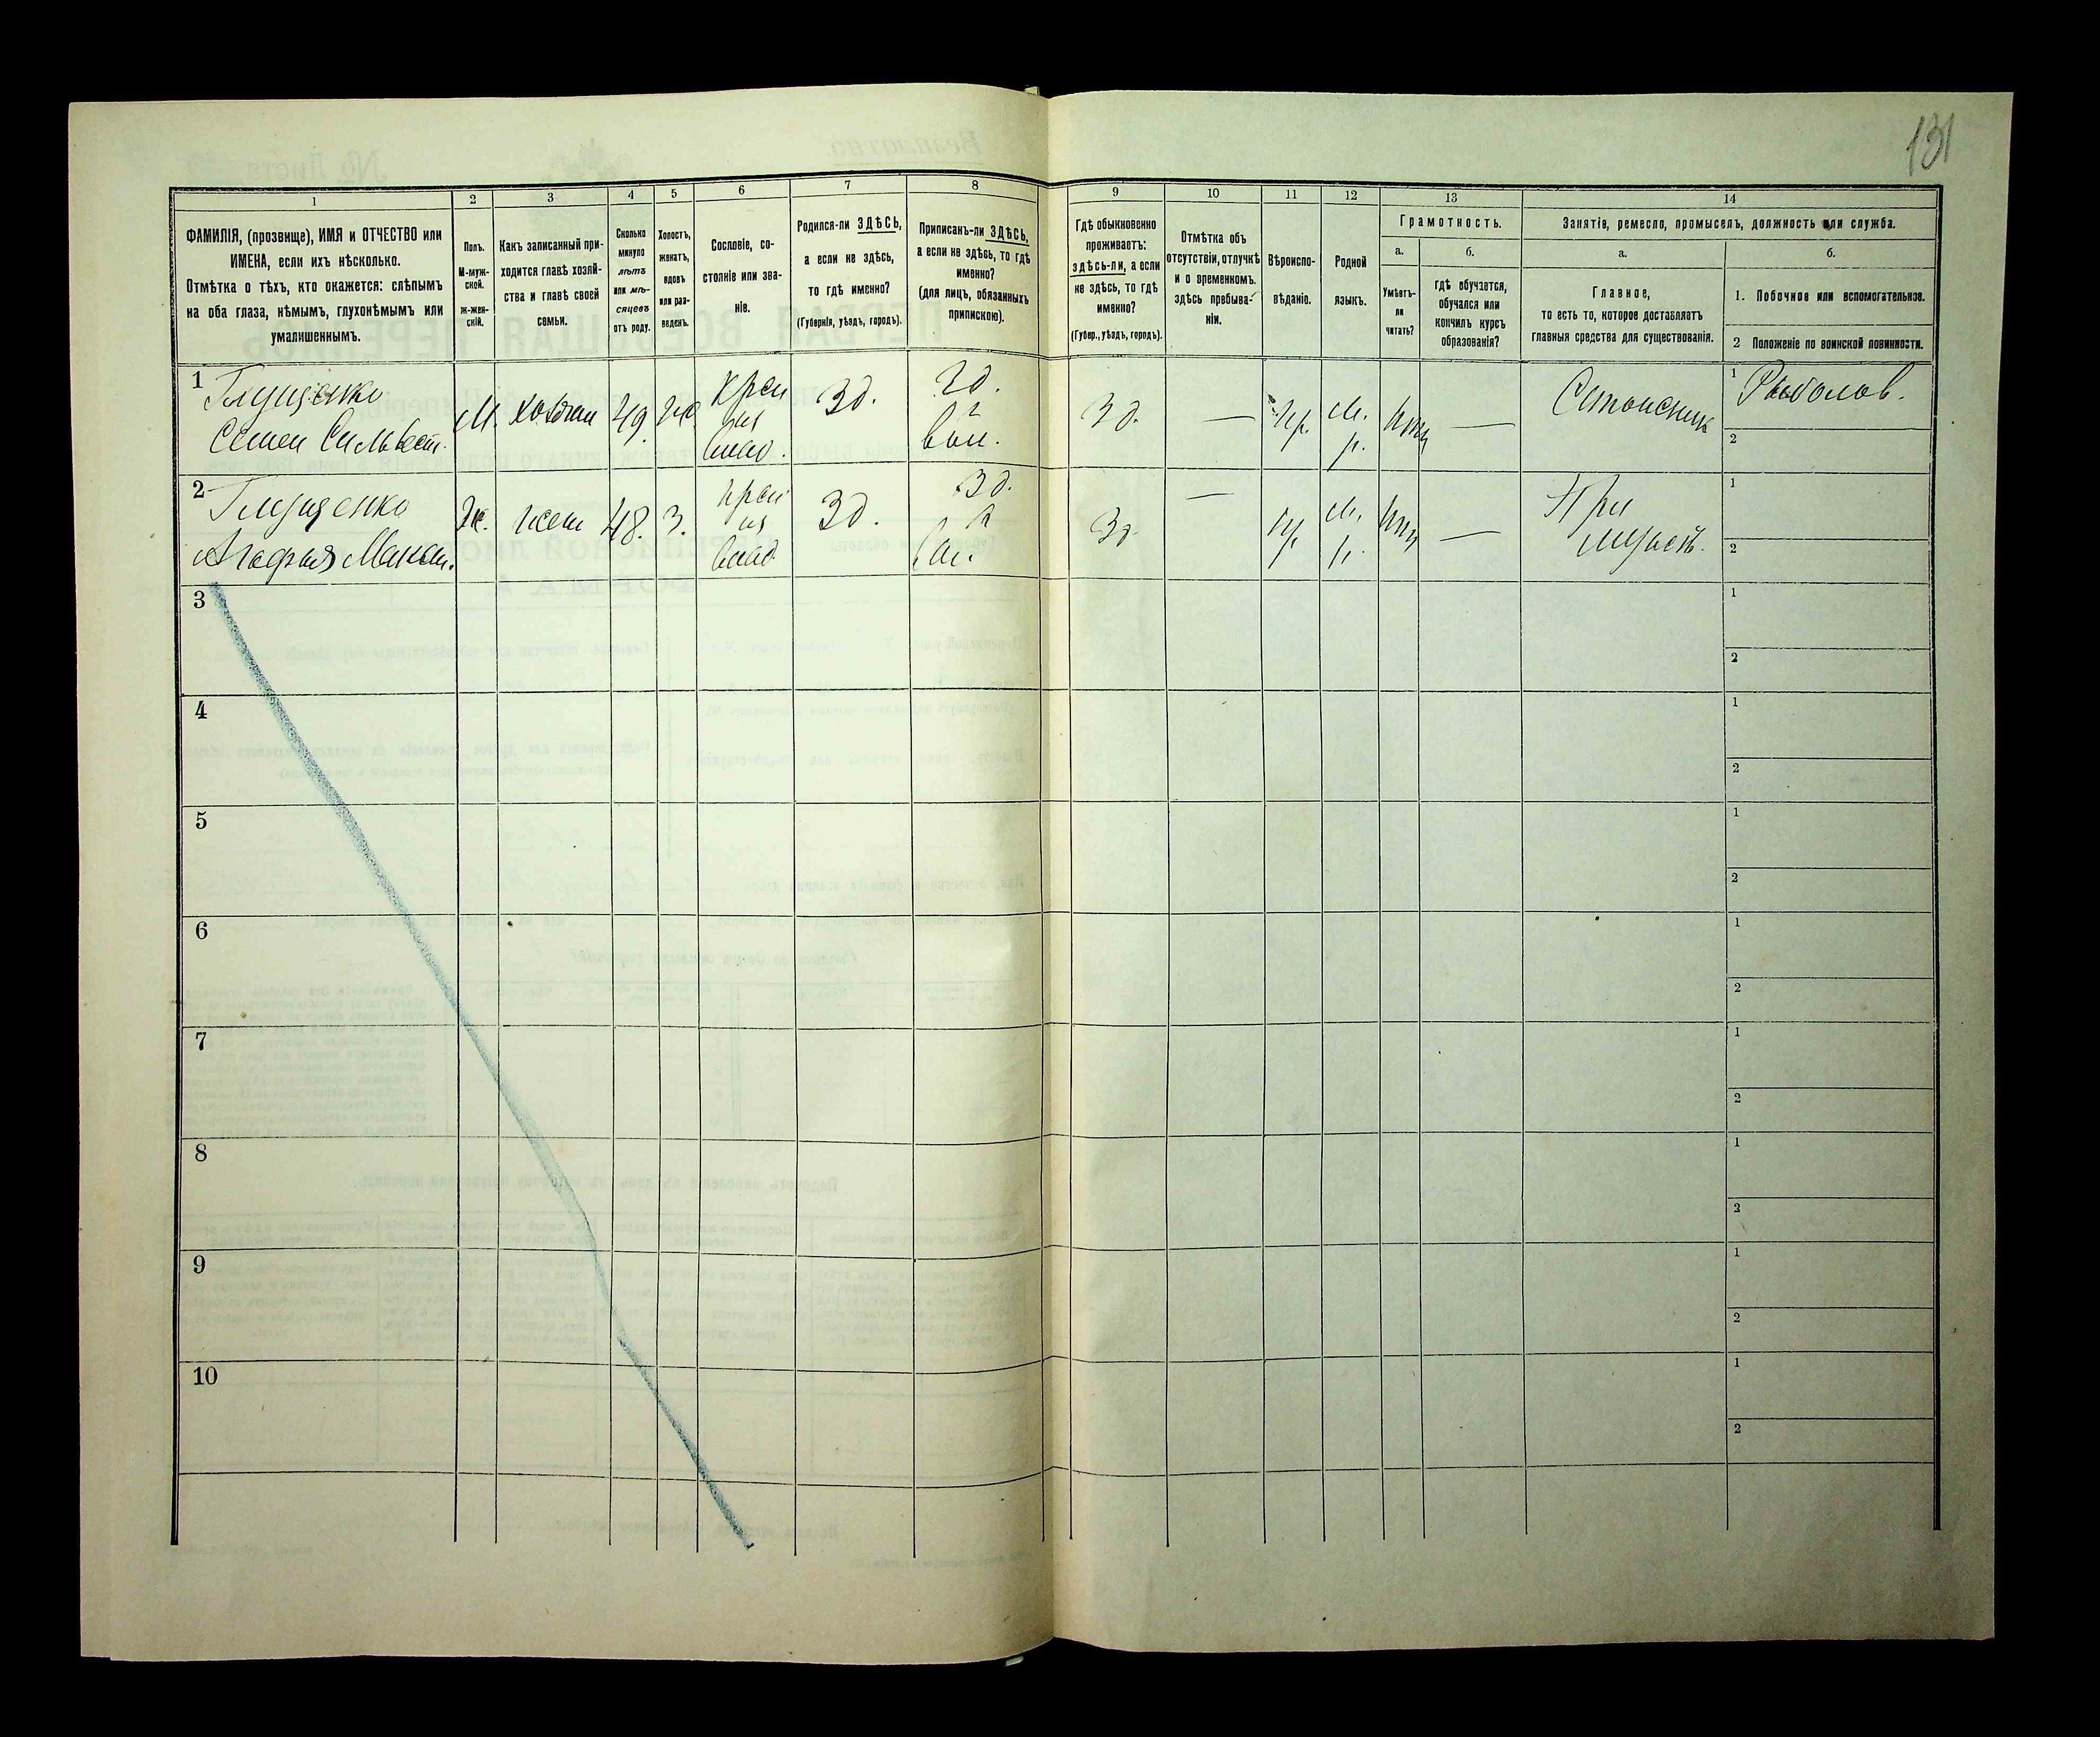 131
1
2
3
4
5
6
7
8
9
10
11
12
13
14
ФАМИЛІЯ, (прозвище), ИМЯ и ОТЧЕСТВО или
ИМЕНА, если ихъ нѣсколько.
Отмѣтка о тѣхъ, кто окажется: слѣпымъ
на оба глаза, нѣмымъ, глухонѣмымъ или
умалишеннымъ.
Полъ.
М-муж-
ской.
Ж-жен-
скій.
Какъ записанный при-
ходится главѣ хозяй-
ства и главѣ своей
семьи.
Сколько
минуло
лѣтъ
или мѣ-
сяцевъ
отъ роду.
Холостъ,
женатъ,
вдовъ
или раз-
веденъ.
Сословіе, со-
стояніе или зва-
ніе.
Родился-ли ЗДѢСЬ,
а если не здѣсь,
то гдѣ именно?
(Губернія, уѣздъ, городъ).
Приписанъ-ли ЗДѢСЬ,
а если не здѣсь, то гдѣ
именно?
(для лицъ, обязанныхъ
припискою).
Гдѣ обыкновенно
проживаетъ:
здѣсь-ли, а если
не здѣсь, то гдѣ
именно?
(Губер., уѣздъ, городъ).
Отмѣтка объ
отсутствіи, отлучкѣ
и о временномъ
здѣсь пребыва-
ніи.
Вѣроиспо-
вѣданіе.
Родной
языкъ.
Грамотность.
а.
Умѣетъ-
ли
читать?
б.
гдѣ обучается,
обучался или
кончилъ курсъ
образованія?
Занятія, ремесло, промыселъ, должность или служба.
а.
Главное,
то есть то, которое доставляетъ
главныя средства для существованія.
б.
1. Побочное или вспомогательное.
2 Положеніе по воинской повинности.
1
Глущенко
Семен Сильвест.
М.
49
Крен
из
Зд.
Зд.
—
пр.
м.
р.
—
1
Рыболов.
2
2
Глущенко
Агафья Макси.
Ж.
жена
48.
З.
крен
из
Зд.
Зд.
Зд.
—
пр.
м.
р.
—
При
мужѣ.
1
2
3
1
2
4
1
2
5
1
2
6
1
2
7
1
2
8
1
2
9
1
2
10
1
2